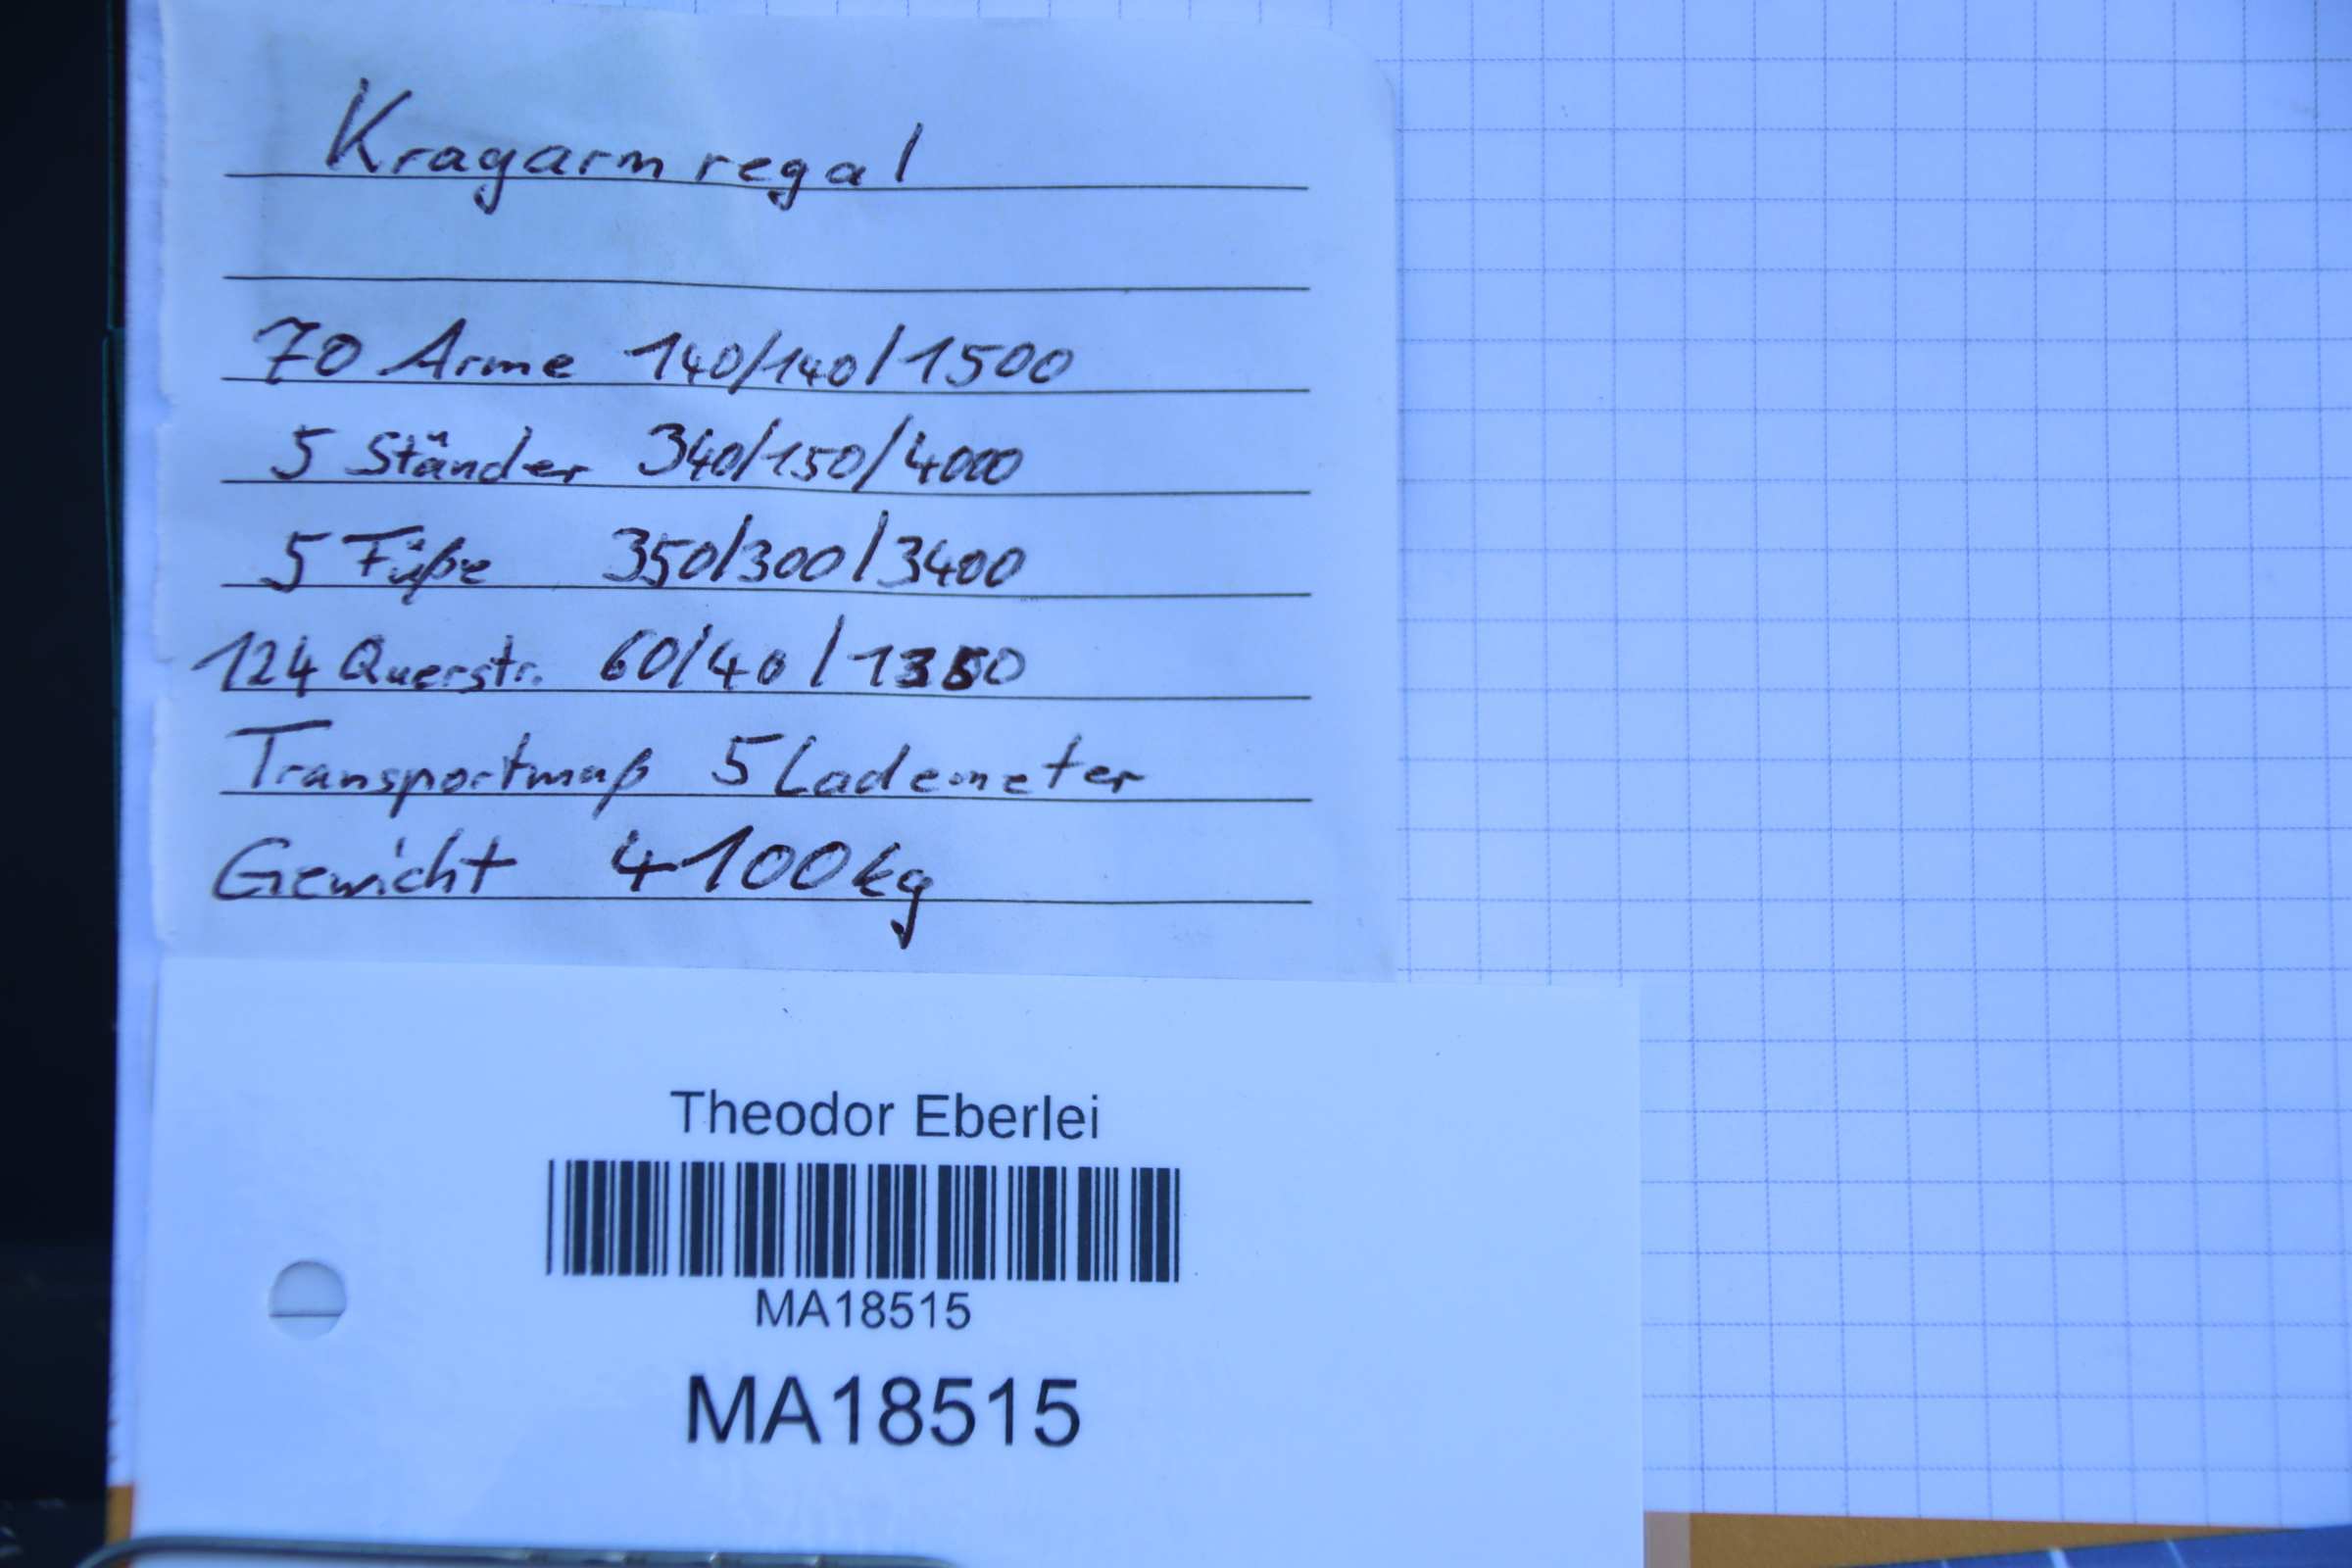 Kragarmregal
70 Arme 140/140/1500
5 Ständer 340/150/4000
5 Füße 350/300/3400
124 Querstr. 60/40/1350
Transportmaß 5 Lademeter
Gewicht 4100kg
Theodor Eberlei
MA18515
MA18515